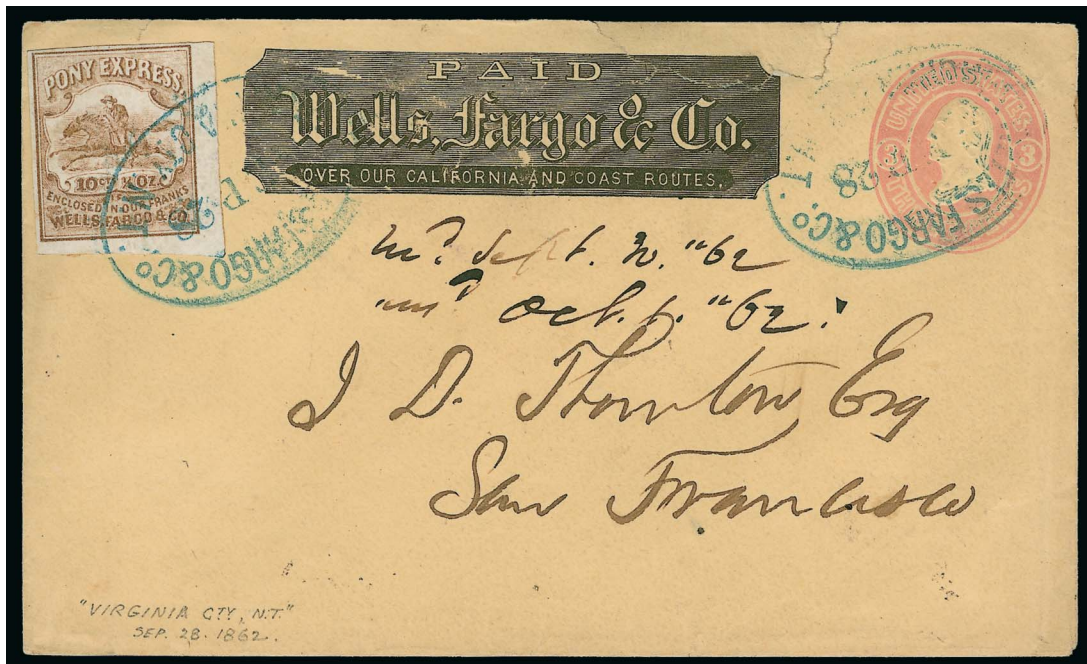 PONY EXPRESS
10cts ½ OZ.
ENCLOSED IN OUR FRANKS
WELLS, FARGO & CO.
PAID
Wells, Fargo & Co.
OVER OUR CALIFORNIA AND COAST ROUTES.
FARGO & Co.
S. FARGO & Co.
28
UNITED STATES
3
3
Sept. "62
Oct. 1. "62.
J D. Thornton Esq
San Francisco
"VIRGINIA CTY, N.T."
SEP. 28. 1862.